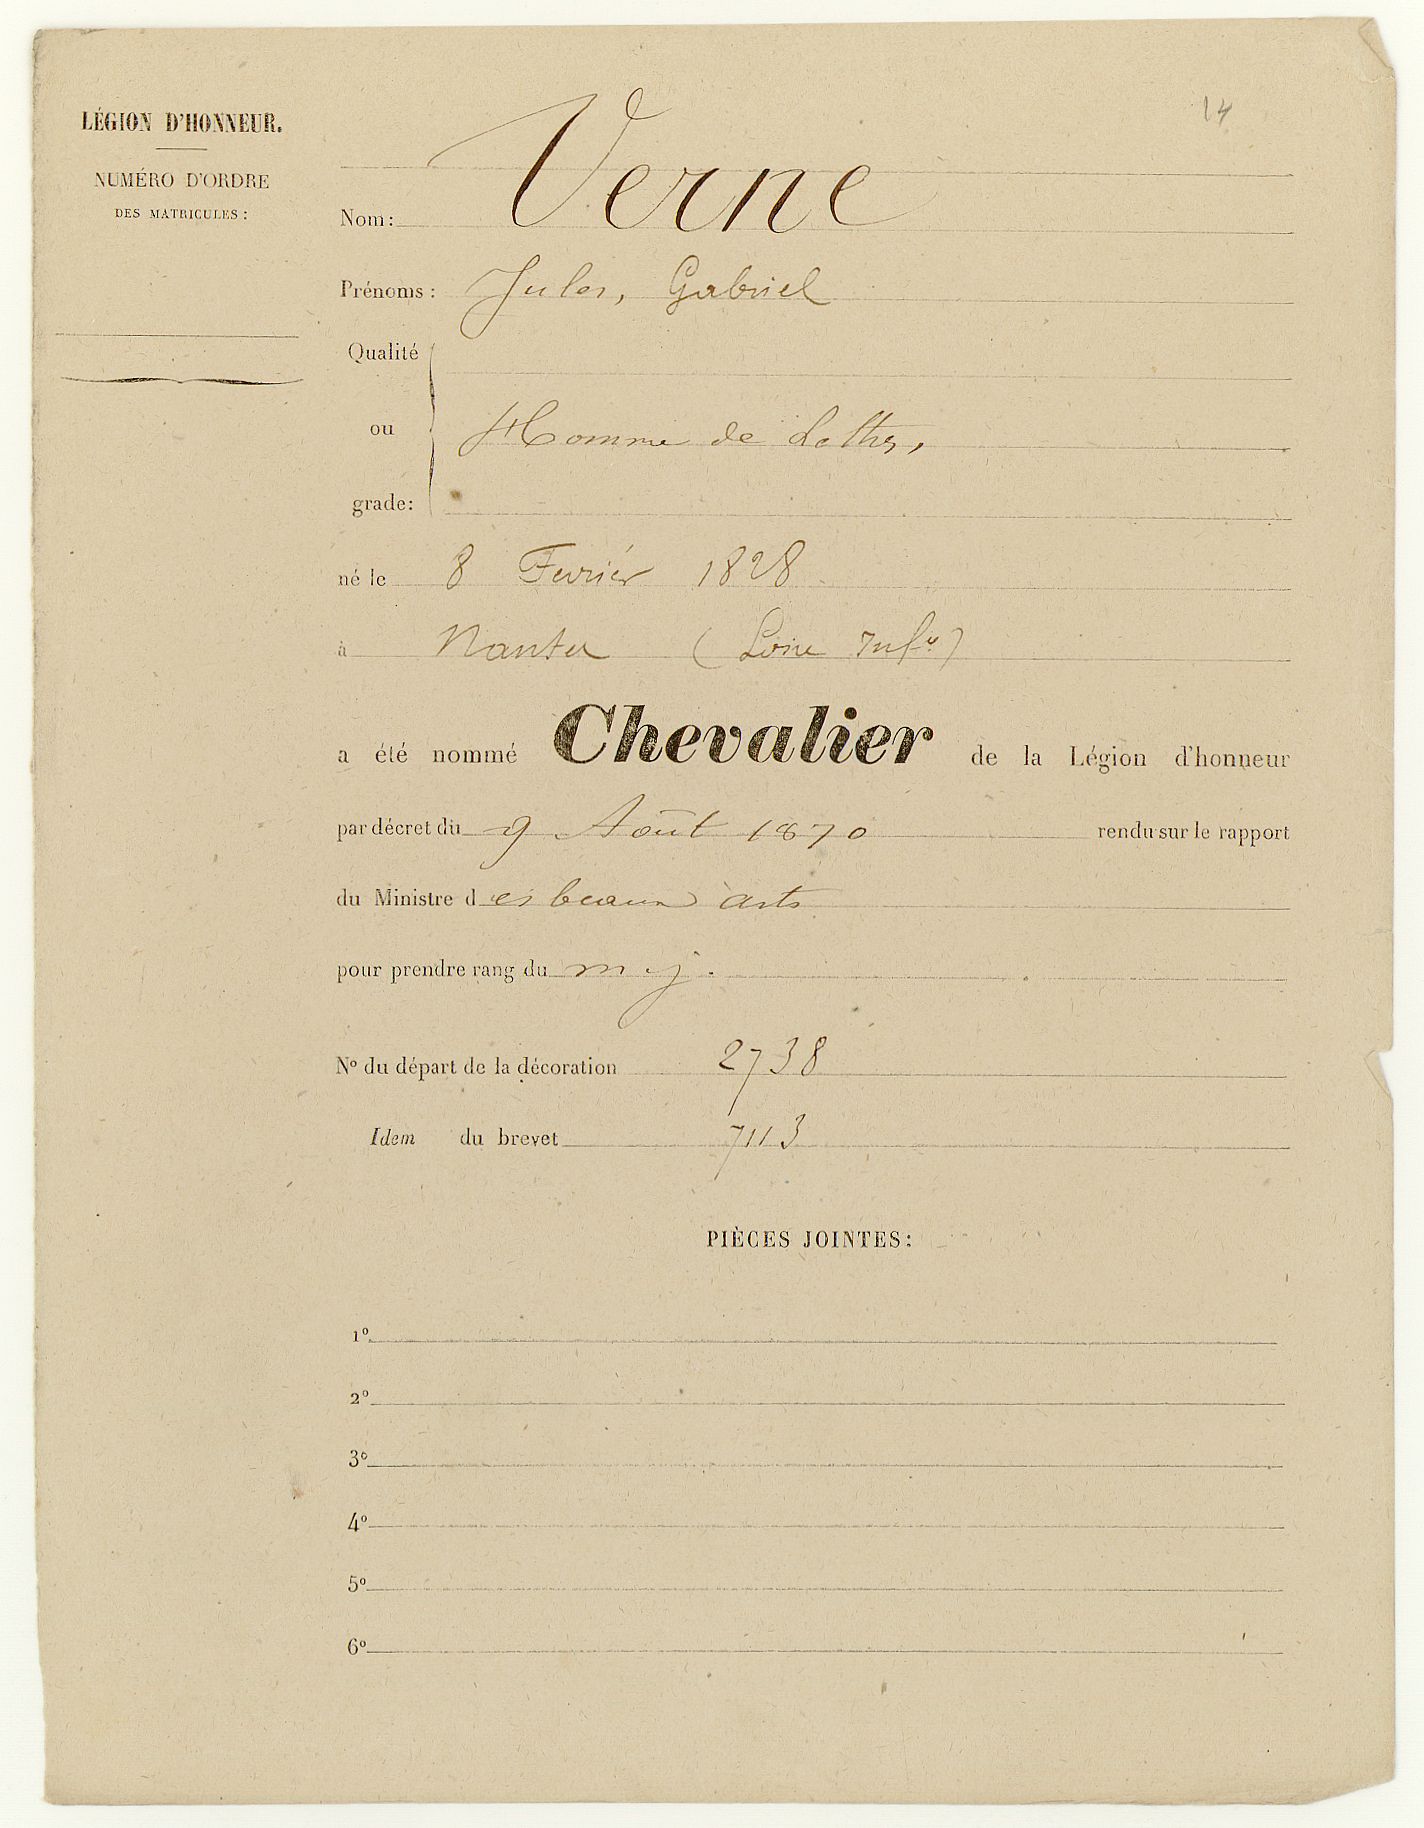 14
LÉGION D'HONNEUR.
NUMÉRO D'ORDRE
DES MATRICULES :
Nom: Verne
Prénoms : Jules, Gabriel
Qualité
ou Homme de Lettres,
grade:
né le 8 Fevrier 1828
à Nantes (Loire Infre)
a été nommé Chevalier de la Légion d'honneur
par décret du 9 Août 1870 rendu sur le rapport
du Ministre des beaux arts
pour prendre rang du m. j.
No du départ de la décoration 2738
Idem du brevet 7113
PIÈCES JOINTES:
1o
2o
3o
4o
5o
6o